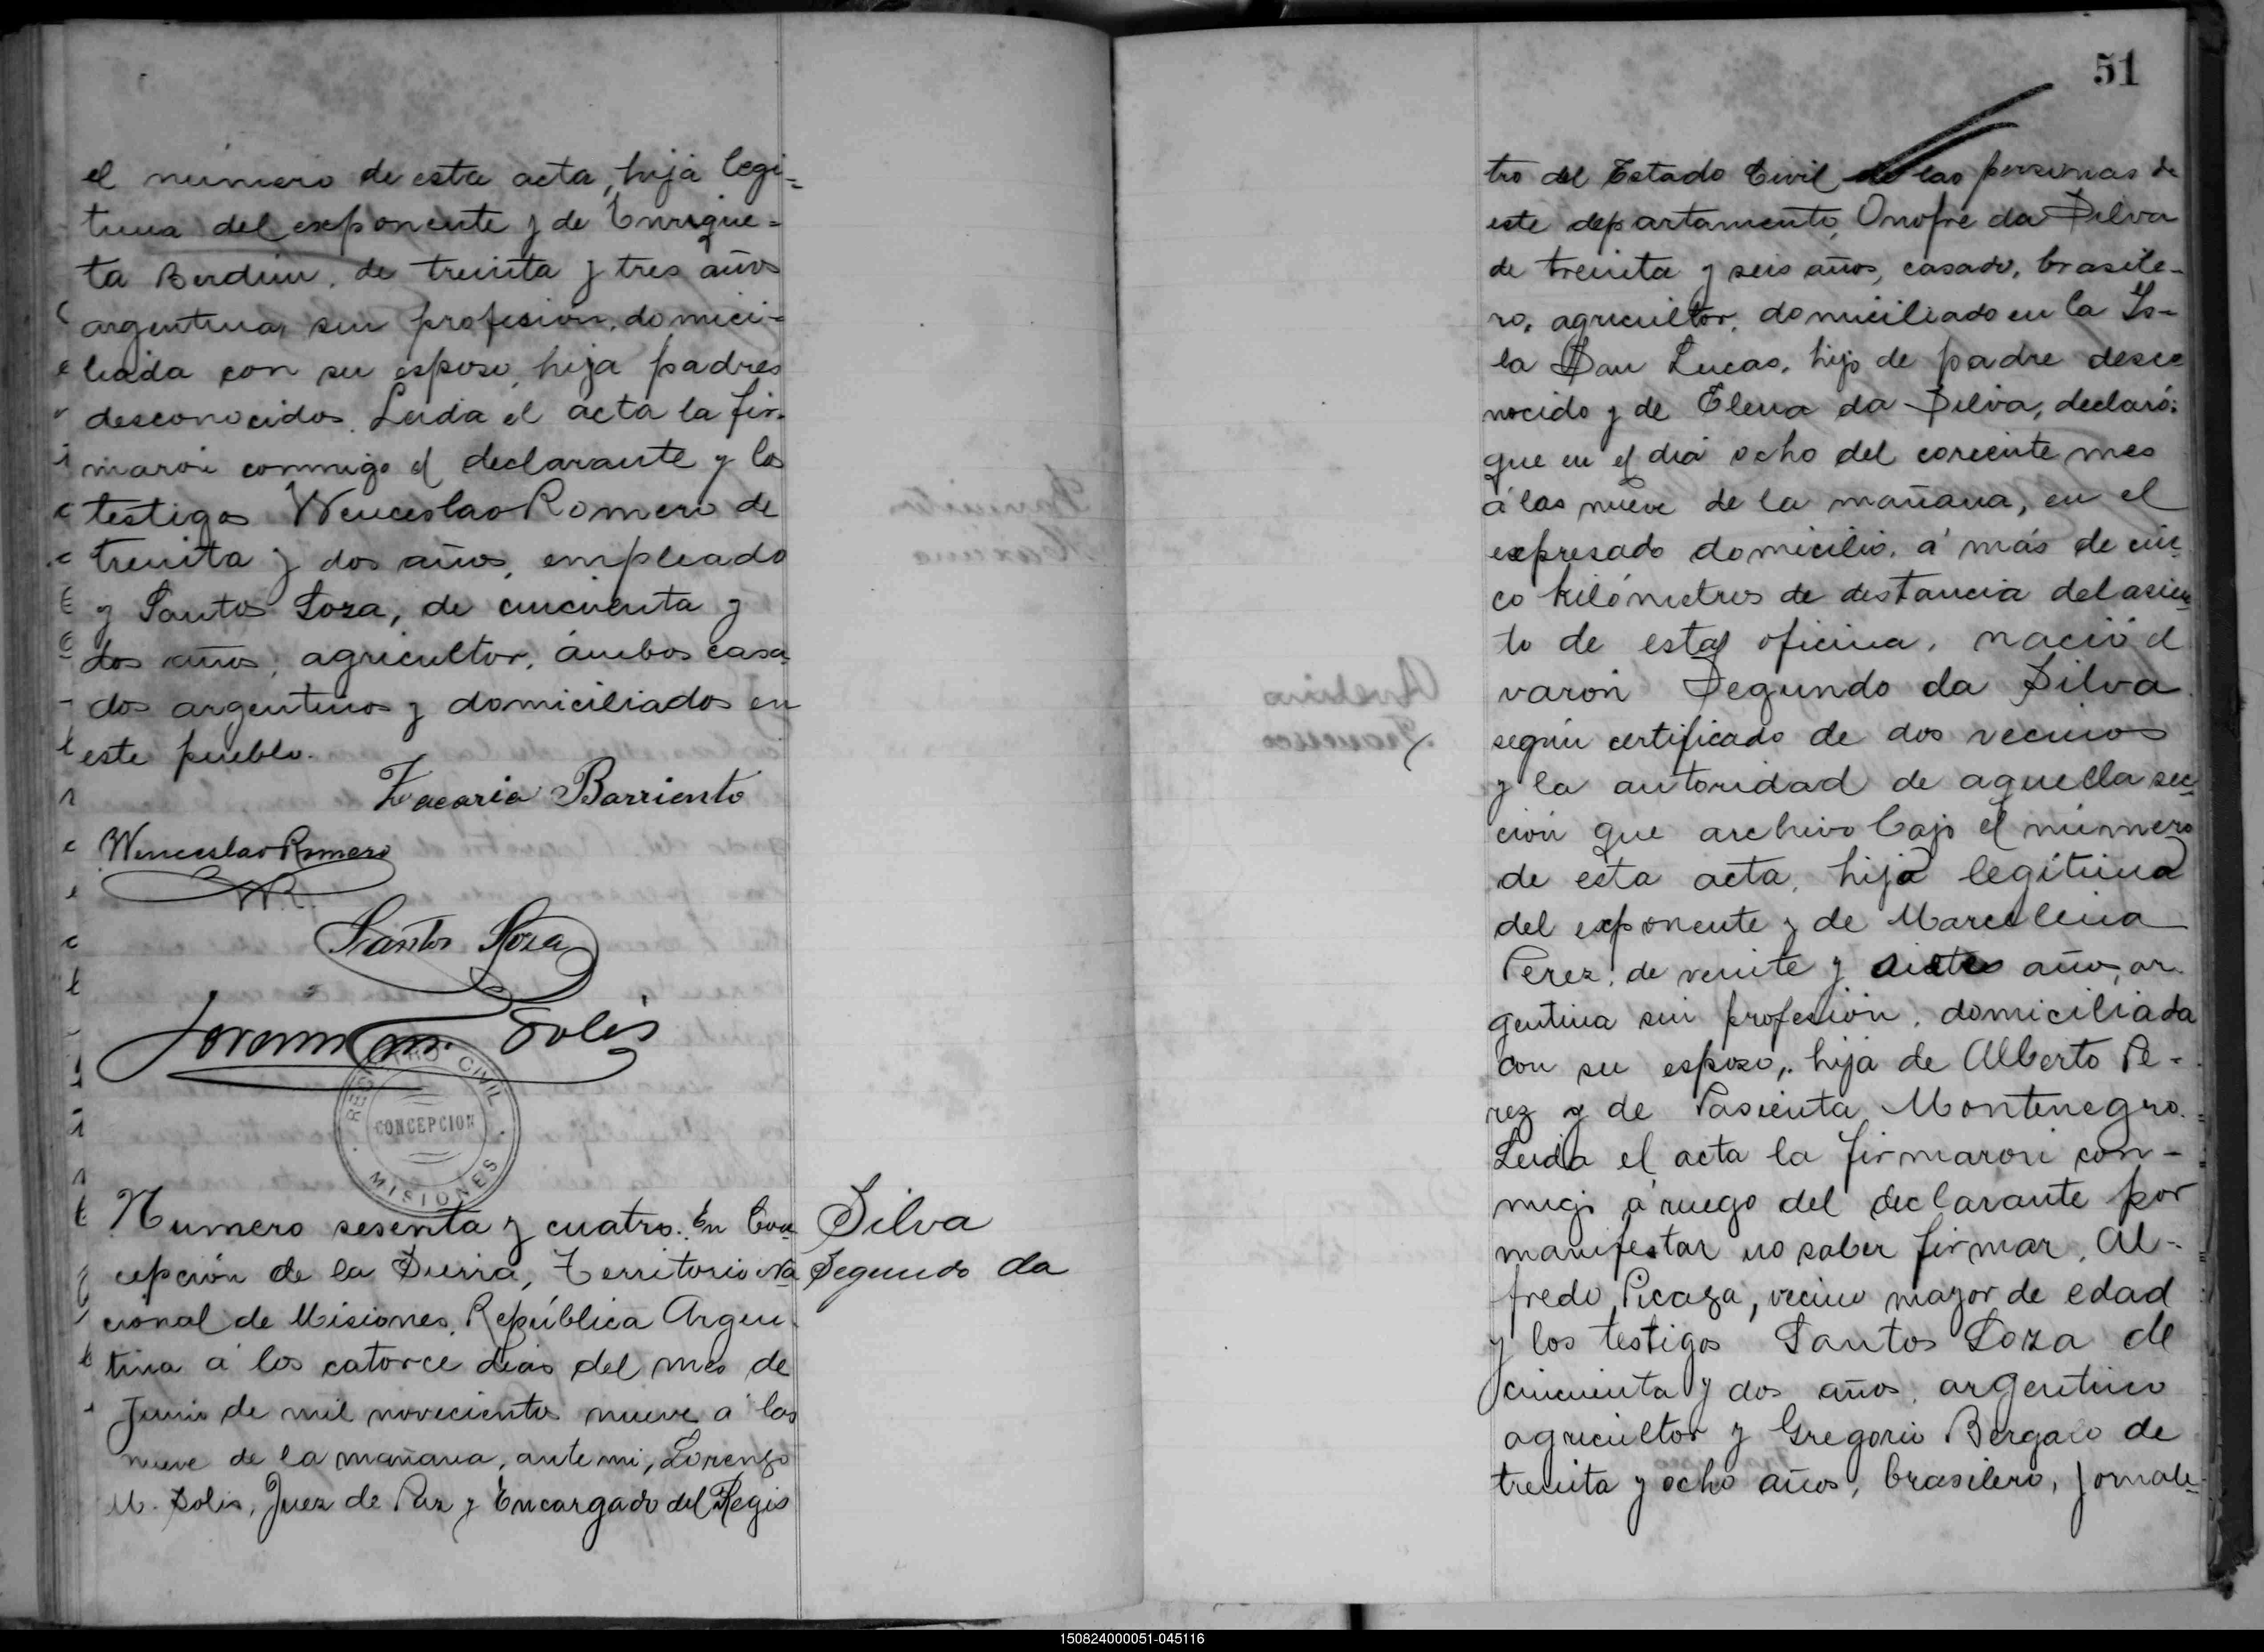 el número de esta acta, hija legi-
tima del exponente y de Enrique-
ta Berdun, de treinta y tres años
argentina, sin profesion, domici-
liada con su esposo, hija padres
desconocidos. Leida el acta la fir-
maron conmigo el declarante y los
testigos Wenceslao Romero de
treinta y dos años, empleado
y Santos Loza, de cincuenta y
dos años, agricultor, ámbos casa-
dos argentinos y domiciliados en
este pueblo.
Zacaria Barriento
Wenceslao Romero
WR.
Santos Loza
Lorenzo M. Solis
REGISTRO CIVIL
CONCEPCION
MISIONES
Numero sesenta y cuatro. En Con-
cepción de la Sierra, Territorio Na-
cional de Misiones, República Argen-
tina á los catorce dias del mes de
Junio de mil novecientos nueve á las
nueve de la mañana, ante mi, Lorenzo
M. Solis, Juez de Paz y Encargado del Regis
Silva
Segundo da
51
tro del Estado Civil de las personas de
este departamento, Onofre da Silva
de treinta y seis años, casado, brasile-
ro, agricultor, domiciliado en la Is-
la San Lucas, hijo de padre desco
nocido y de Elena da Silva, declaró:
que en el dia ocho del coriente mes
á las nueve de la mañana, en el
expresado domicilio, á más de cin-
co kilómetros de distancia del asien-
to de esta oficina, nació el
varon Segundo da Silva
según certificado de dos vecinos
y la autoridad de aquella sec-
ción que archivo bajo el número
de esta acta, hijo legítimo
del exponente y de Marcelina
Perez, de veinte y siete años, ar-
gentina sin profesion, domiciliada
con su esposo, hija de Alberto Pe-
rez y de Pasienta Montenegro.
Leida el acta la firmaron con-
migo á ruego del declarante por
manifestar no saber firmar, Al-
fredo Picaza, vecino mayor de edad
y los testigos Santos Loza de
cincuenta y dos años, argentino
agricultor y Gregorio de
treinta y ocho años, brasilero, jornale-
150824000051-045116